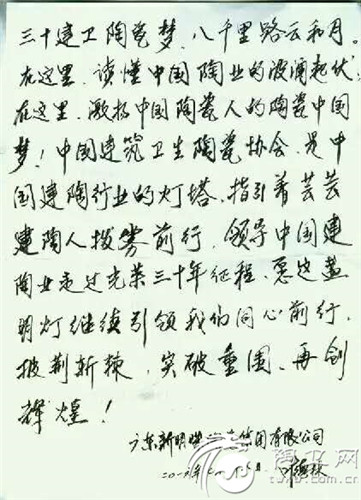 三十建卫陶瓷梦，八千里路云和月。
在这里，读懂中国陶业的波涌起伏；
在这里，激扬中国陶瓷人的陶瓷中国
梦！中国建筑卫生陶瓷协会，是中
国建陶行业的灯塔，指引着芸芸
建陶人拨雾前行，领导中国建
陶业走过光荣三十年征程，愿这盏
明灯继续引领我们同心前行，
披荆斩棘，突破重围，再创
辉煌！
广东新明珠陶瓷集团有限公司